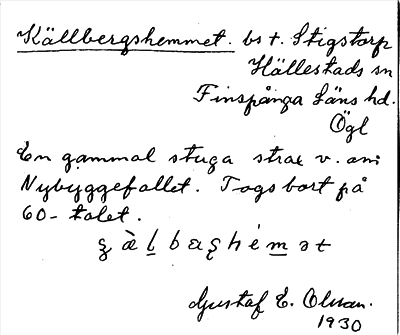 Källbergshemmet. bs t. Stigstorp
Hällestads sn
Finspånga Läns hd.
Ögl
En gammal stuga strax v. om
Nybyggefallet. Togs bort på
60-talet.
Gustaf E. Olsson.
1930